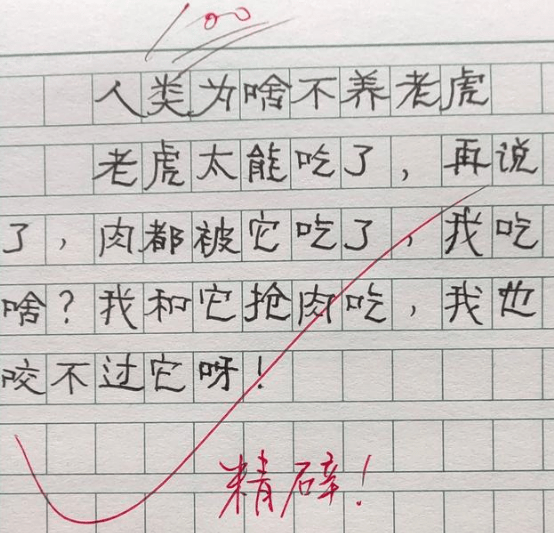 100
人类为啥不养老虎
老虎太能吃了，再说
了，肉都被它吃了，我吃
啥？我和它抢肉吃，我也
咬不过它呀！
精辟！